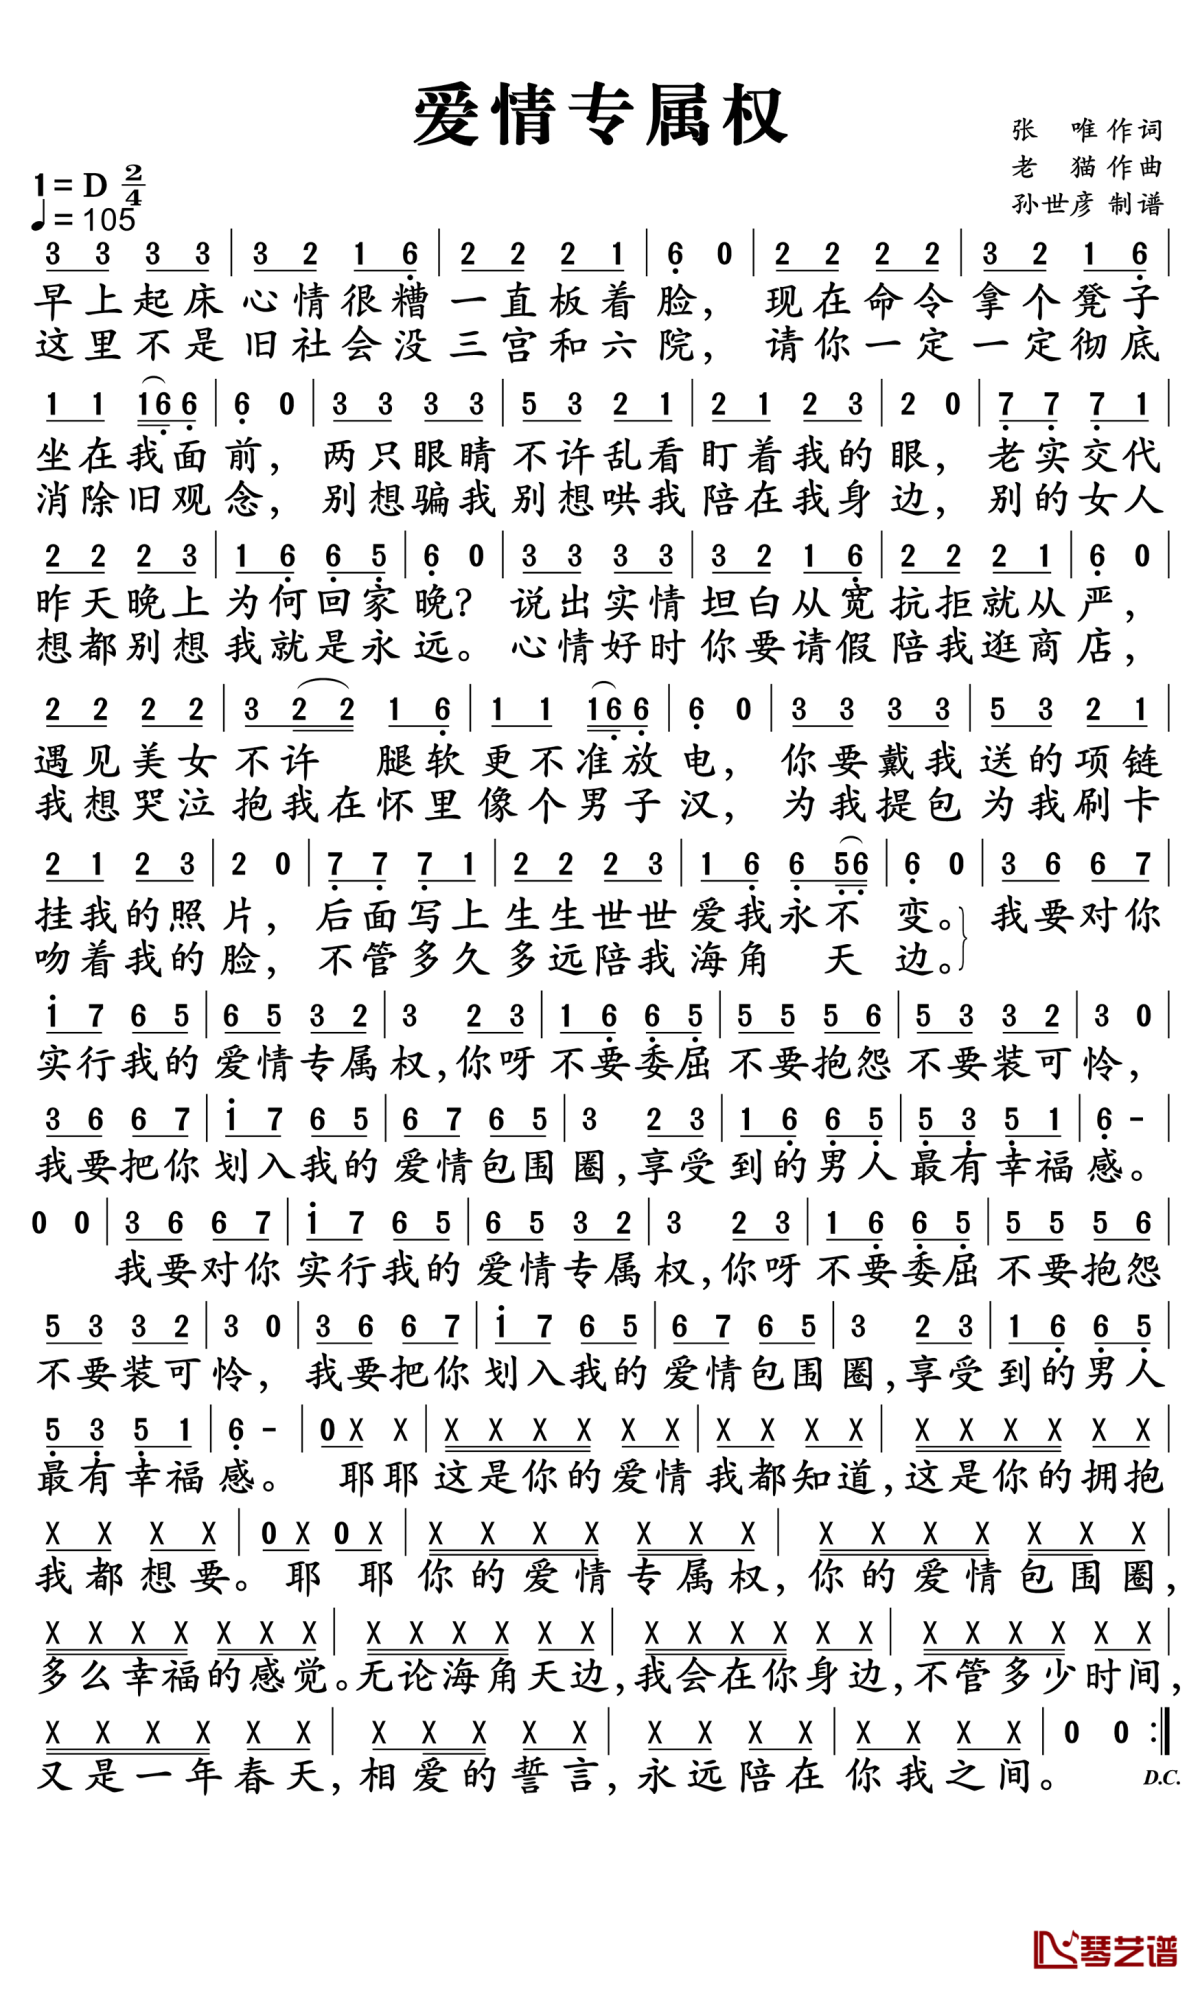 爱情专属权
张 唯 作词
老 猫 作曲
孙世彦 制谱
1=D 2/4
♩=105
3 3 3 3 | 3 2 1 6 | 2 2 2 1 | 6 0 | 2 2 2 2 | 3 2 1 6 |
早上起床 心情很糟 一直板着 脸， 现在命令 拿个凳子
这里不是 旧社会没 三宫和六 院， 请你一定 一定彻底
1 1 16 6 | 6 0 | 3 3 3 3 | 5 3 2 1 | 2 1 2 3 | 2 0 | 7 7 7 1 |
坐在我面 前， 两只眼睛 不许乱看 盯着我的 眼， 老实交代
消除旧观 念， 别想骗我 别想哄我 陪在我身 边， 别的女人
2 2 2 3 | 1 6 6 5 | 6 0 | 3 3 3 3 | 3 2 1 6 | 2 2 2 1 | 6 0 |
昨天晚上 为何回家 晚? 说出实情 坦白从宽 抗拒就从 严，
想都别想 我就是永 远。 心情好时 你要请假 陪我逛商 店，
2 2 2 2 | 3 2 2 1 6 | 1 1 16 6 | 6 0 | 3 3 3 3 | 5 3 2 1 |
遇见美女 不许 腿软 更不准放 电， 你要戴我 送的项链
我想哭泣 抱我在怀里 像个男子 汉， 为我提包 为我刷卡
2 1 2 3 | 2 0 | 7 7 7 1 | 2 2 2 3 | 1 6 6 56 | 6 0 | 3 6 6 7 |
挂我的照 片， 后面写上 生生世世 爱我永不 变。 我要对你
吻着我的 脸， 不管多久 多远陪我 海角 天 边。
1 7 6 5 | 6 5 3 2 | 3 2 3 | 1 6 6 5 | 5 5 5 6 | 5 3 3 2 | 3 0 |
实行我的 爱情专属 权，你呀 不要委屈 不要抱怨 不要装可 怜，
3 6 6 7 | 1 7 6 5 | 6 7 6 5 | 3 2 3 | 1 6 6 5 | 5 3 5 1 | 6 - |
我要把你 划入我的 爱情包围 圈，享受 到的男人 最有幸福 感。
0 0 | 3 6 6 7 | 1 7 6 5 | 6 5 3 2 | 3 2 3 | 1 6 6 5 | 5 5 5 6 |
我要对你 实行我的 爱情专属 权，你呀 不要委屈 不要抱怨
5 3 3 2 | 3 0 | 3 6 6 7 | 1 7 6 5 | 6 7 6 5 | 3 2 3 | 1 6 6 5 |
不要装可 怜， 我要把你 划入我的 爱情包围 圈，享受 到的男人
5 3 5 1 | 6 - | 0 X X | X X X X X X | X X X X | X X X X X X |
最有幸福 感。 耶耶 这是你的爱情 我都知道，这是你的拥抱
X X X X | 0 X 0 X | X X X X X X X | X X X X X X X |
我都想要。 耶 耶 你的爱情专属权，你的爱情包围圈，
X X X X X X X | X X X X X X | X X X X X X | X X X X X X |
多么幸福的感觉。无论海角天边，我会在你身边，不管多少时间，
X X X X X X | X X X X X | X X X X | X X X X | 0 0 :|
又是一年春天，相爱的誓言，永远陪在 你我之间。
D.C.
琴艺谱